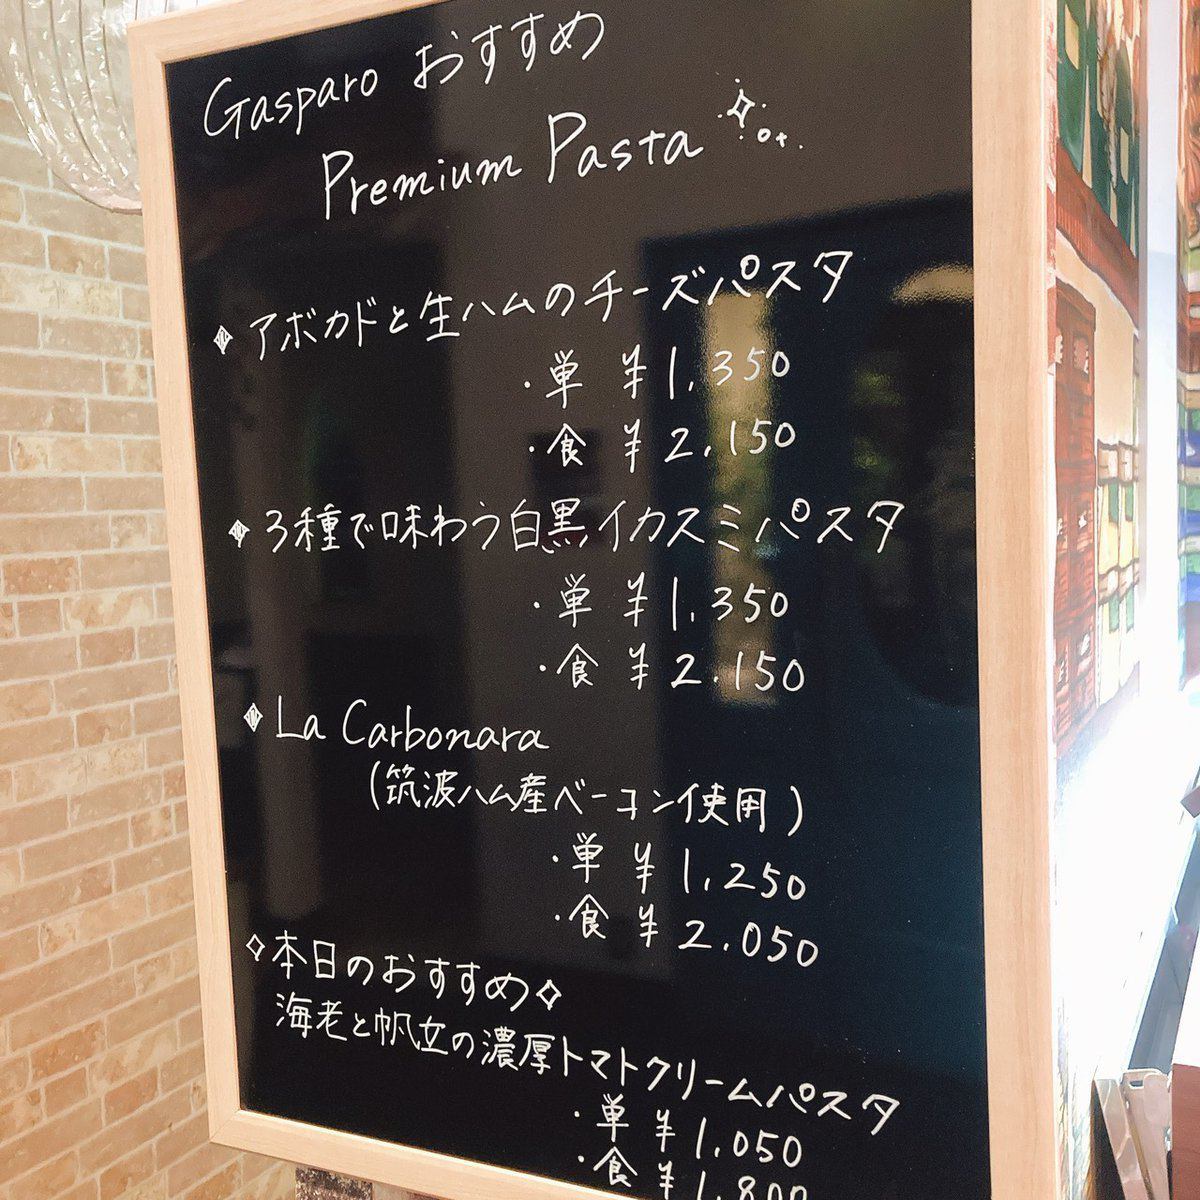 Gasparo おすすめ
Premium Pasta
アボカドと生ハムのチーズパスタ
・単 ¥1,350
・食 ¥2,150
3種で味わう白黒イカスミパスタ
・単 ¥1,350
・食 ¥2,150
La Carbonara
(筑波ハム産ベーコン使用)
・単 ¥1,250
・食 ¥2,050
本日のおすすめ
海老と帆立の濃厚トマトクリームパスタ
・単 ¥1,050
・食 ¥1,800